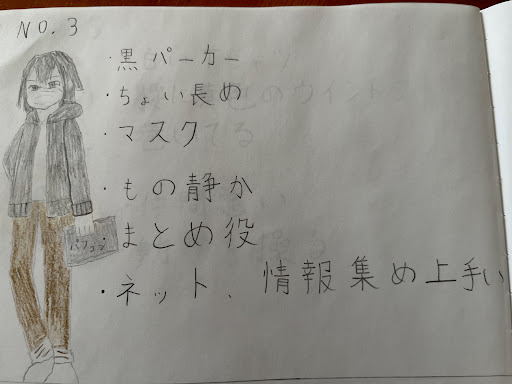 NO.3
・黒パーカー
・ちょい長め
・マスク
・もの静か
まとめ役
・ネット、情報集め上手い
パソコン